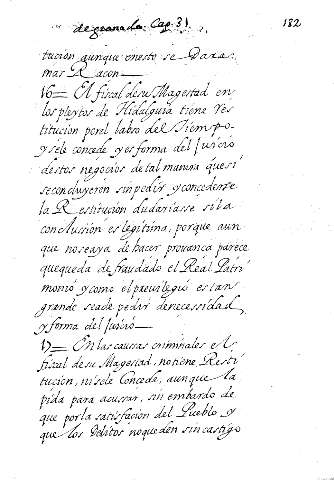 de granada. Cap. 31.
182
tucion aunque en esto se Dara
mas Racon
V6= El fiscal de su Magestad en
los pleytos de Hidalguia tiene Res
titucion por el labso del Tiempo
y sele concede y es forma del Juicio
destos negocios de tal manera que si
se concluyeron sin pedir y concederse
la Restitucion dudariasse si la
conclusion es legitima, porque aun
que no se aya de hacer provanca parece
que queda defraudado el Real Patri
monio y como el previlegio es tan
grande se a de pedir de necessidad,
y forma del Juicio
V7= En las causas criminales el
fiscal de su Magestad, no tiene Resti
tucion, ni sele Concede, aunque la
pida para acussar, sin embardo de
que por la satisfacion del Pueblo y
que los Delitos no queden sin castigo